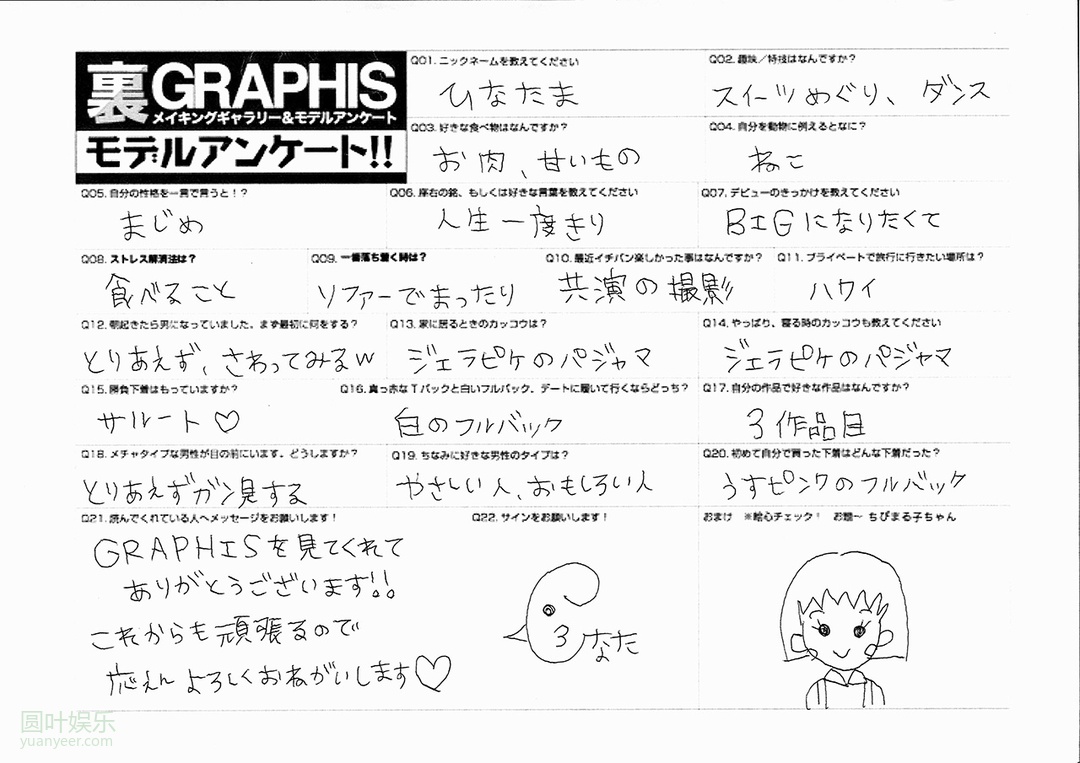 裏GRAPHIS
メイキングギャラリー&モデルアンケート
モデルアンケート!!
Q01. ニックネームを教えてください
ひなたま
Q02. 趣味/特技はなんですか?
スイーツめぐり、ダンス
Q03. 好きな食べ物はなんですか?
お肉、甘いもの
Q04. 自分を動物に例えるとなに?
ねこ
Q05. 自分の性格を一言で言うと!?
まじめ
Q06. 座右の銘、もしくは好きな言葉を教えてください
人生一度きり
Q07. デビューのきっかけを教えてください
BIGになりたくて
Q08. ストレス解消法は?
食べること
Q09. 一番落ち着く時は?
ソファーでまったり
Q10. 最近イチバン楽しかった事はなんですか?
共演の撮影
Q11. プライベートで旅行に行きたい場所は?
ハワイ
Q12. 朝起きたら男になっていました。まず最初に何をする?
とりあえず、さわってみるw
Q13. 家に居るときのカッコウは?
ジェラピケのパジャマ
Q14. やっぱり、寝る時のカッコウも教えてください
ジェラピケのパジャマ
Q15. 勝負下着はもっていますか?
サルート♡
Q16. 真っ赤なTバックと白いフルバック。デートに履いて行くならどっち?
白のフルバック
Q17. 自分の作品で好きな作品はなんですか?
3作品目
Q18. メチャタイプな男性が目の前にいます。どうしますか?
とりあえずガン見する
Q19. ちなみに好きな男性のタイプは?
やさしい人、おもしろい人
Q20. 初めて自分で買った下着はどんな下着だった?
うすピンクのフルバック
Q21. 読んでくれている人へメッセージをお願いします!
GRAPHISを見てくれて
ありがとうございます!!
これからも頑張るので
応えんよろしくおねがいします♡
Q22. サインをお願いします!
ひなた
おまけ ※絵心チェック! お題~ ちびまる子ちゃん
圆叶娱乐
yuanyeer.com